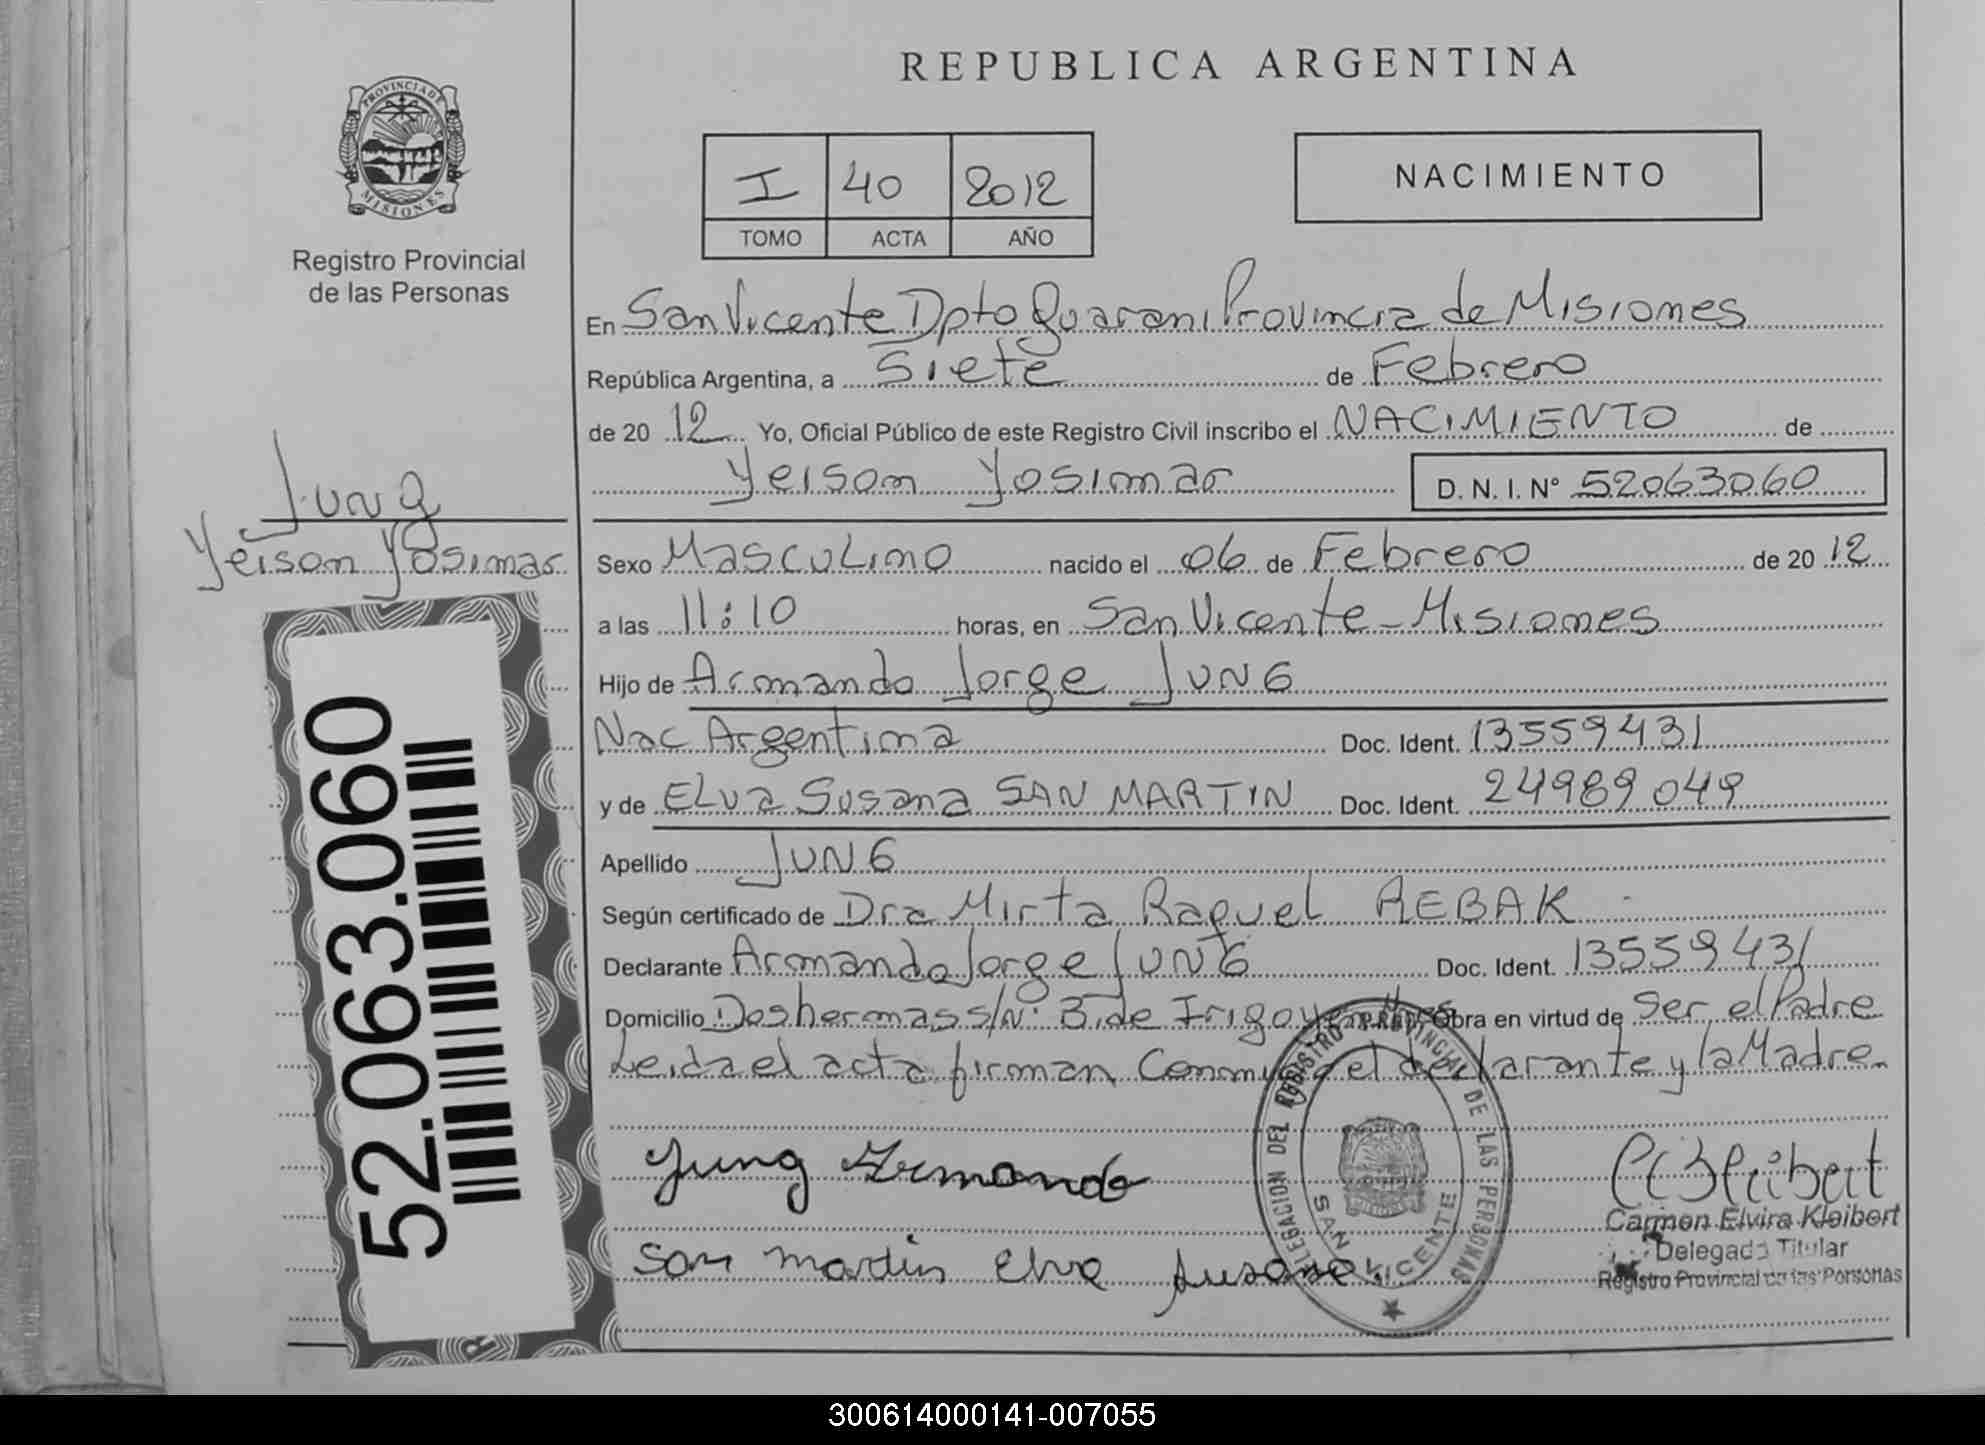 REPUBLICA ARGENTINA
PROVINCIA DE MISIONES
Registro Provincial
de las Personas
I 40 2012
TOMO ACTA AÑO
NACIMIENTO
En San Vicente Dpto Guarani Provincia de Misiones
República Argentina, a Siete de Febrero
de 20 12 Yo, Oficial Público de este Registro Civil inscribo el NACIMIENTO de
Yeison Yosimar D. N. I. N° 52063060
Jung
Yeison Yosimar
Sexo Masculino nacido el 06 de Febrero de 20 12
a las 11:10 horas, en San Vicente - Misiones
Hijo de Armando Jorge JUNG
Nac Argentina Doc. Ident. 13559431
y de ELva Susana SAN MARTIN Doc. Ident. 24989049
Apellido JUNG
Según certificado de Dra Mirta Raquel REBAK
Declarante Armando Jorge JUNG Doc. Ident. 13559431
Domicilio Doshermas s/N° B. de Irigoyen Obra en virtud de Ser el Padre
Leida el acta firman Conmigo el declarante y la Madre.
52.063.060
Jung Armando
San martin Elva Susana
DELEGACION DEL REGISTRO PROVINCIAL DE LAS PERSONAS
SAN VICENTE
CEKleibert
Carmen Elvira Kleibert
Delegada Titular
Registro Provincial de las Personas
300614000141-007055